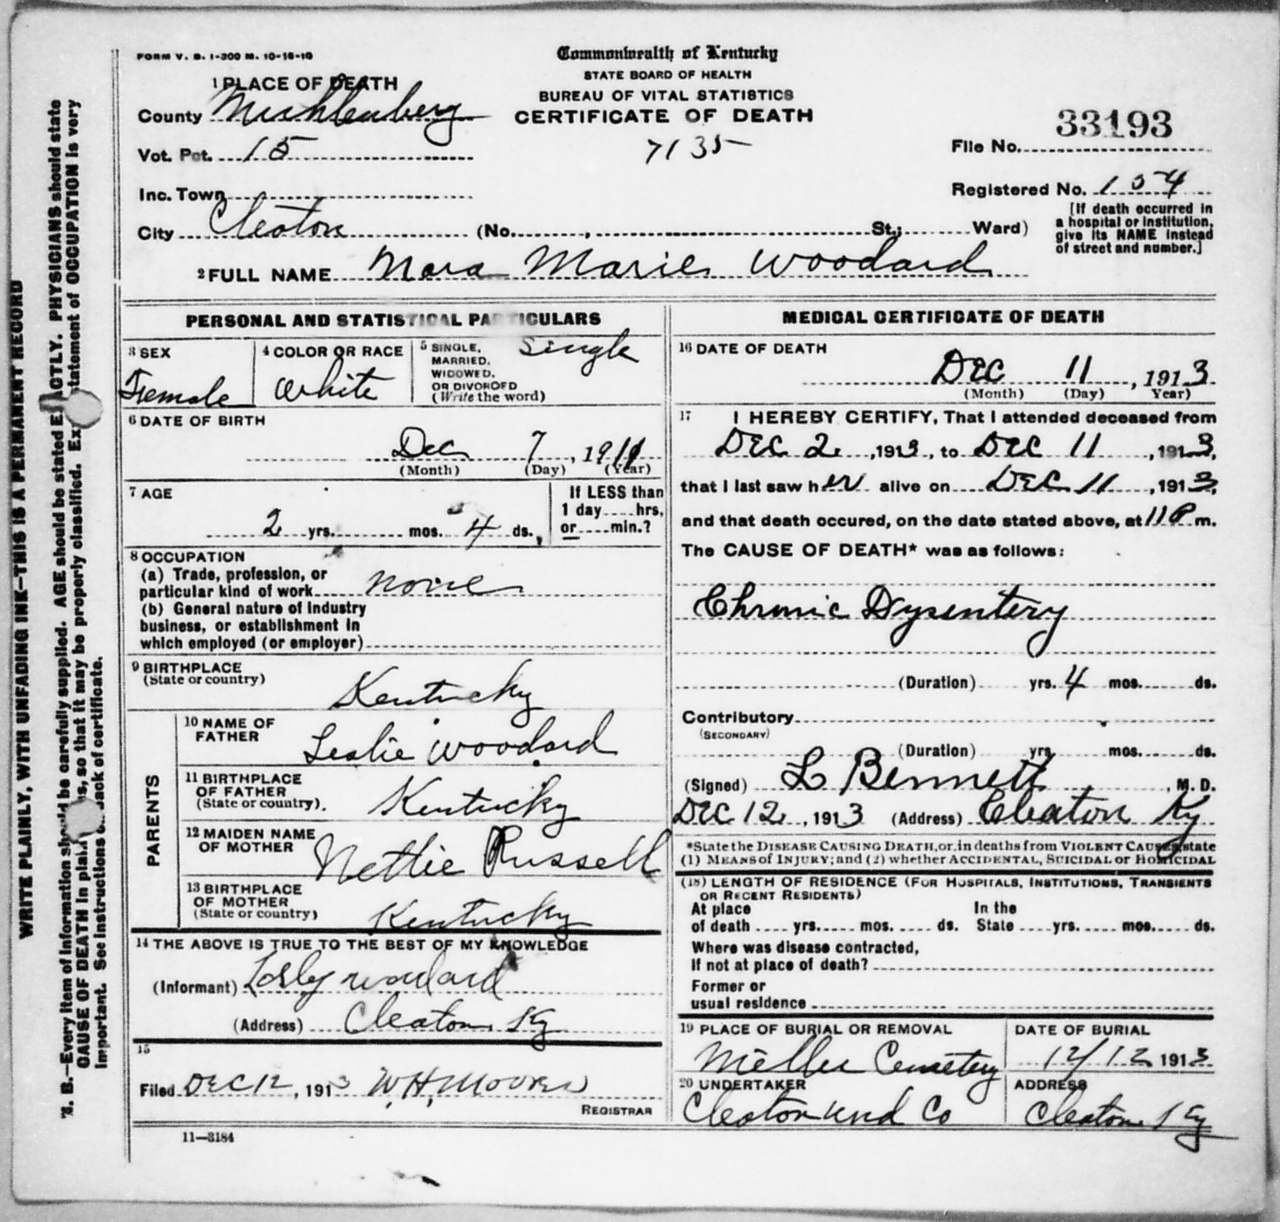 FORM V. S. 1-300 M. 10-16-10
Commonwealth of Kentucky
STATE BOARD OF HEALTH
BUREAU OF VITAL STATISTICS
CERTIFICATE OF DEATH
7135
1 PLACE OF DEATH
County Muhlenberg
Vot. Pct. 15
Inc. Town
City Cleaton (No. , St.; Ward)
File No. 33193
Registered No. 154
[If death occurred in
a hospital or institution,
give its NAME instead
of street and number.]
2 FULL NAME Nora Marie Woodard
PERSONAL AND STATISTICAL PARTICULARS
3 SEX
Female
4 COLOR OR RACE
White
5 SINGLE,
MARRIED,
WIDOWED,
OR DIVORCED
(Write the word)
Single
6 DATE OF BIRTH
Dec 7, 1911
(Month) (Day) (Year)
7 AGE
2 yrs. mos. 4 ds.,
If LESS than
1 day hrs,
or min.?
8 OCCUPATION
(a) Trade, profession, or
particular kind of work none
(b) General nature of industry
business, or establishment in
which employed (or employer)
9 BIRTHPLACE
(State or country)
Kentucky
PARENTS
10 NAME OF
FATHER
Leslie Woodard
11 BIRTHPLACE
OF FATHER
(State or country).
Kentucky
12 MAIDEN NAME
OF MOTHER
Nettie Russell
13 BIRTHPLACE
OF MOTHER
(State or country)
Kentucky
14 THE ABOVE IS TRUE TO THE BEST OF MY KNOWLEDGE
(Informant) Lesly Woodard
(Address) Cleaton Ky
15
Filed DEC 12, 1913 W.H. Moores
REGISTRAR
11—3184
MEDICAL CERTIFICATE OF DEATH
16 DATE OF DEATH
DEC 11, 1913
(Month) (Day) Year)
17 I HEREBY CERTIFY, That I attended deceased from
DEC 2, 1913, to DEC 11, 1913,
that I last saw her alive on DEC 11, 1913,
and that death occured, on the date stated above, at 11 P m.
The CAUSE OF DEATH* was as follows:
Chronic Dysentery
(Duration) yrs. 4 mos. ds.
Contributory
(SECONDARY)
(Duration) yrs mos. ds.
(Signed) L Bennett, M. D.
DEC 12, 1913 (Address) Cleaton Ky
*State the DISEASE CAUSING DEATH, or, in deaths from VIOLENT CAUSES, state
(1) MEANS of INJURY; and (2) whether ACCIDENTAL, SUICIDAL or HOMICIDAL
(18) LENGTH OF RESIDENCE (FOR HOSPITALS, INSTITUTIONS, TRANSIENTS
OR RECENT RESIDENTS)
At place In the
of death yrs. mos. ds. State yrs. mos. ds.
Where was disease contracted,
If not at place of death?
Former or
usual residence
19 PLACE OF BURIAL OR REMOVAL
Miller Cemetery
DATE OF BURIAL
12/12 1913
20 UNDERTAKER
Cleaton Und Co
ADDRESS
Cleaton Ky
WRITE PLAINLY, WITH UNFADING INK—THIS IS A PERMANENT RECORD
N. B.—Every item of information should be carefully supplied. AGE should be stated EXACTLY. PHYSICIANS should state
CAUSE OF DEATH in plain terms, so that it may be properly classified. Exact statement of OCCUPATION is very
important. See instructions on back of certificate.